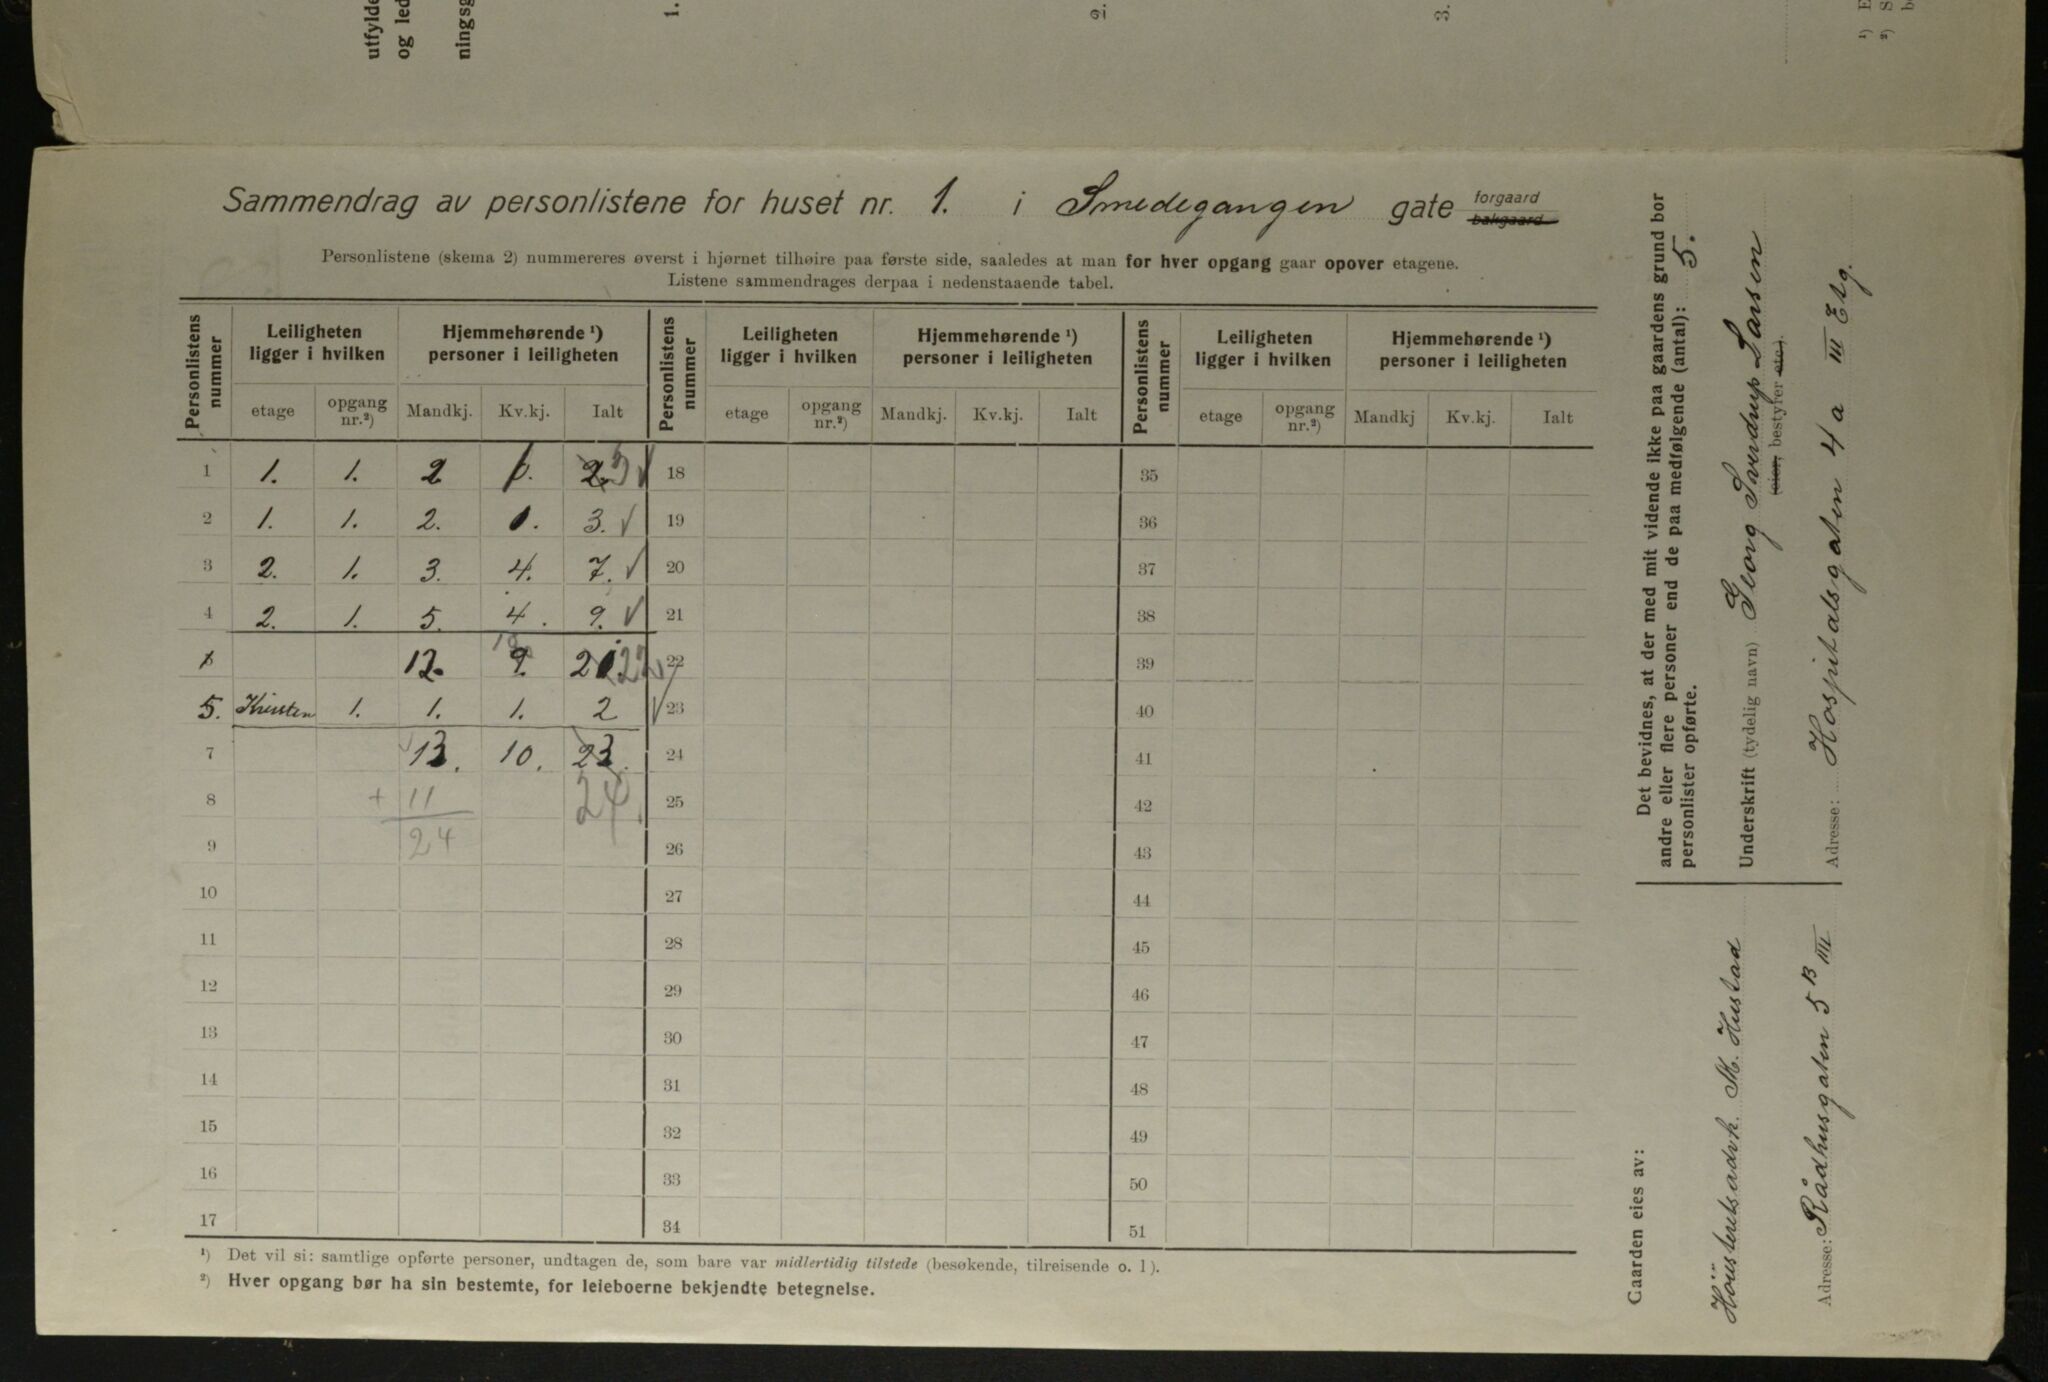 utfylde
og led
ningsg
1.
2.
3.
¹) E
²) S
b
Sammendrag av personlistene for huset nr. 1. i Smedegangen gate forgaard bakgaard
Personlistene (skema 2) nummereres øverst i hjørnet tilhøire paa første side, saaledes at man for hver opgang gaar opover etagene.
Listene sammendrages derpaa i nedenstaaende tabel.
Personlistens nummer Leiligheten ligger i hvilken Hjemmehørende ¹) personer i leiligheten Personlistens nummer Leiligheten ligger i hvilken Hjemmehørende ¹) personer i leiligheten Personlistens nummer Leiligheten ligger i hvilken Hjemmehørende ¹) personer i leiligheten
etage opgang nr.²) Mandkj. Kv.kj. Ialt etage opgang nr.²) Mandkj. Kv.kj. Ialt etage opgang nr.²) Mandkj Kv.kj. Ialt
1 1. 1. 2 1. 2. 3 18 35
2 1. 1. 2. 1. 3. 19 36
3 2. 1. 3. 4. 7. 20 37
4 2. 1. 5. 4. 9. 21 38
12. 9. 10 21. 22 22 39
5. Kvisten 1. 1. 1. 2 23 40
7 13. 10. 23. 24 41
8 + 11 24. 25 42
9 24 26 43
10 27 44
11 28 45
12 29 46
13 30 47
14 31 48
15 32 49
16 33 50
17 34 51
¹) Det vil si: samtlige opførte personer, undtagen de, som bare var midlertidig tilstede (besøkende, tilreisende o. l).
²) Hver opgang bør ha sin bestemte, for leieboerne bekjendte betegnelse.
Det bevidnes, at der med mit vidende ikke paa gaardens grund bor
andre eller flere personer end de paa medfølgende (antal): 5.
personlister opførte.
Underskrift (tydelig navn) Georg Sverdrup Larsen
(eier, bestyrer etc.).
Adresse: Hospitalsgaten 4 a III Etg.
Gaarden eies av:
Höiesteretsadvk. M. Hustad
Adresse: Rådhusgaten 5 B III